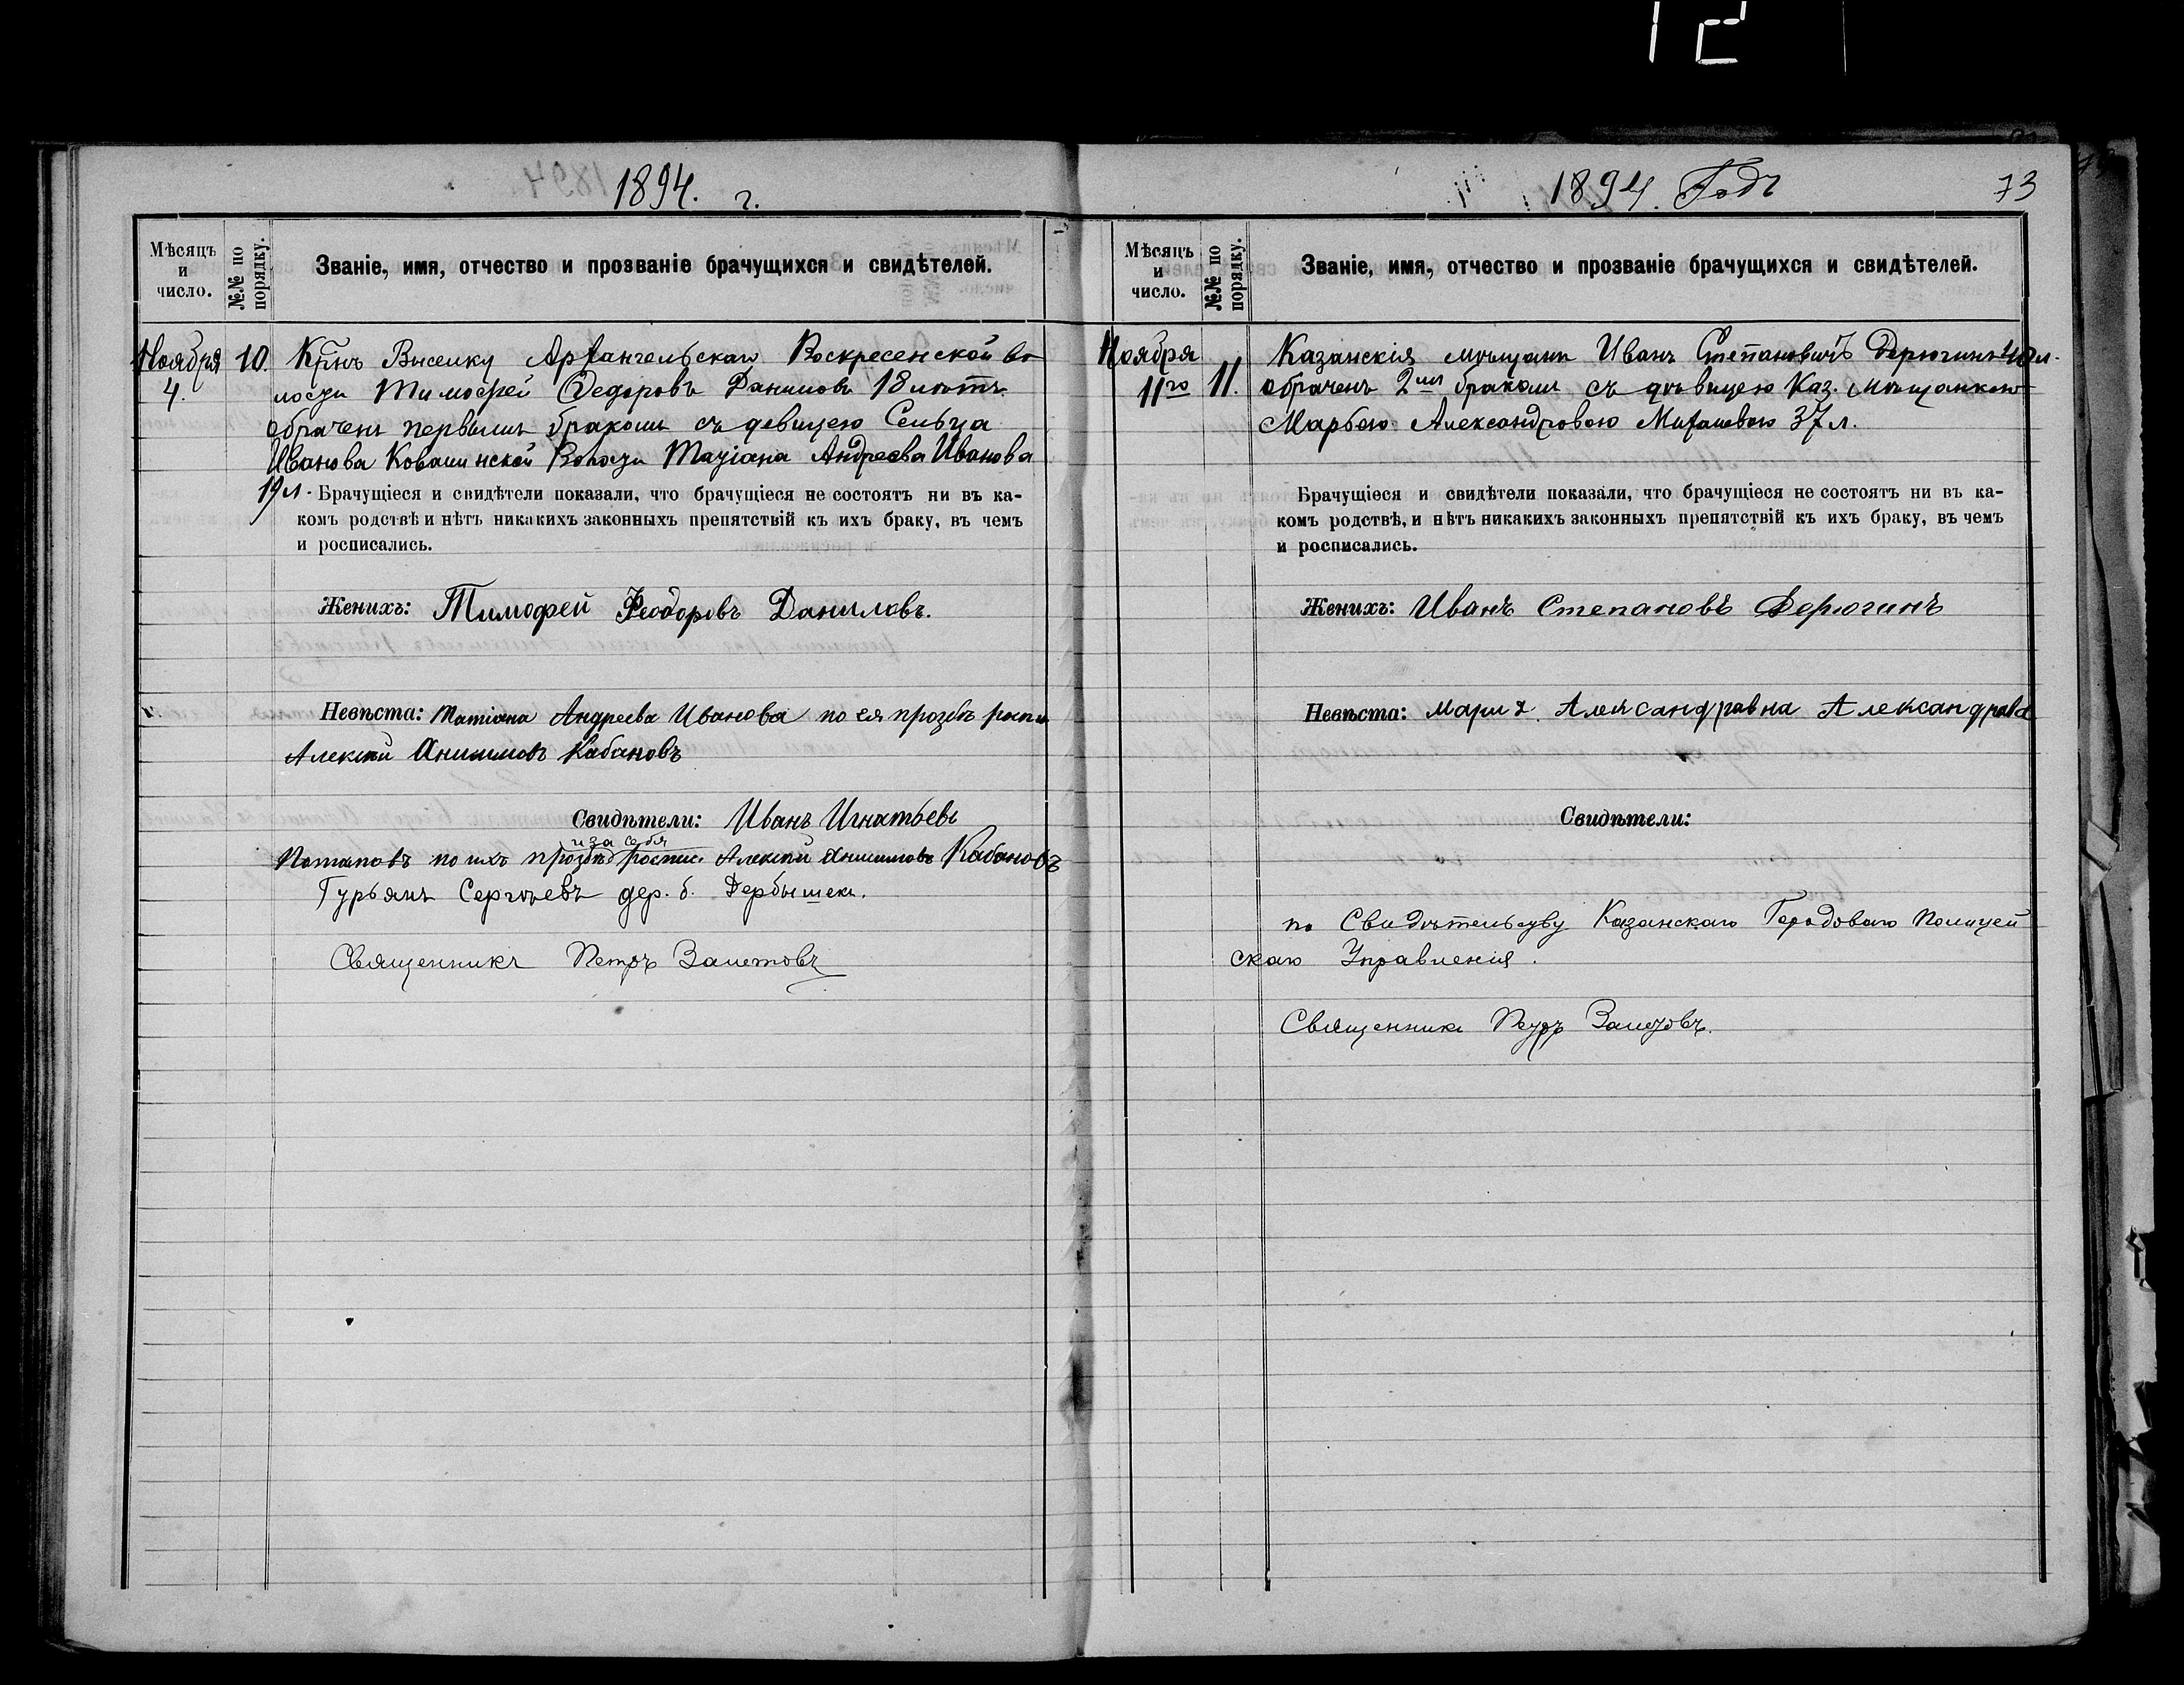 12
1894. г.
Мѣсяцъ и число.
№№ по порядку.
Званіе, имя, отчество и прозваніе брачущихся и свидѣтелей.
Ноября 4.
10.
Крнъ Выселку Архангельскаго Воскресенской во-
лости Тимофей Федоровъ Данилов 18 лѣтъ
обраченъ первымъ бракомъ съ девицею Сельца
Иванова Ковалинской Волости Татіана Андреева Иванова
19 л.
Брачущіеся и свидѣтели показали, что брачущіеся не состоятъ ни въ ка-
комъ родствѣ и нѣтъ никакихъ законныхъ препятствій къ ихъ браку, въ чемъ
и росписались.
Женихъ: Тимофей Феодоровъ Даниловъ.
Невѣста: Татіана Андреева Иванова по ея прозбѣ роспи.
Алексѣй Анисимовъ Кабановъ
Свидѣтели: Иванъ Игнатьевъ
и за себя
Потаповъ по ихъ прозбѣ роспис. Алексѣй Анисимовъ Кабановъ
Гурьянъ Сергѣевъ дер. б. Дербышек.
Священникъ Петръ Залетовъ
1894. Годъ
73
Мѣсяцъ и число.
№№ по порядку.
Званіе, имя, отчество и прозваніе брачущихся и свидѣтелей.
Ноября 11го
11.
Казанскія мѣщанин Иванъ Степановичъ Дерюгинъ 48 л.
обраченъ 2мъ бракомъ съ дѣвицею Каз. мѣщанкою
Марьею Александровою 37 л.
Брачущіеся и свидѣтели показали, что брачущіеся не состоятъ ни въ ка-
комъ родствѣ, и нѣтъ никакихъ законныхъ препятствій къ ихъ браку, въ чемъ
и росписались.
Женихъ: Иванъ Степановъ Дерюгинъ
Невѣста: Мария Александравна Александрава
Свидѣтели:
по Свидѣтельству Казанскаго Городоваго Полицей
скаго Управленія.
Священникъ Петръ Залетовъ.